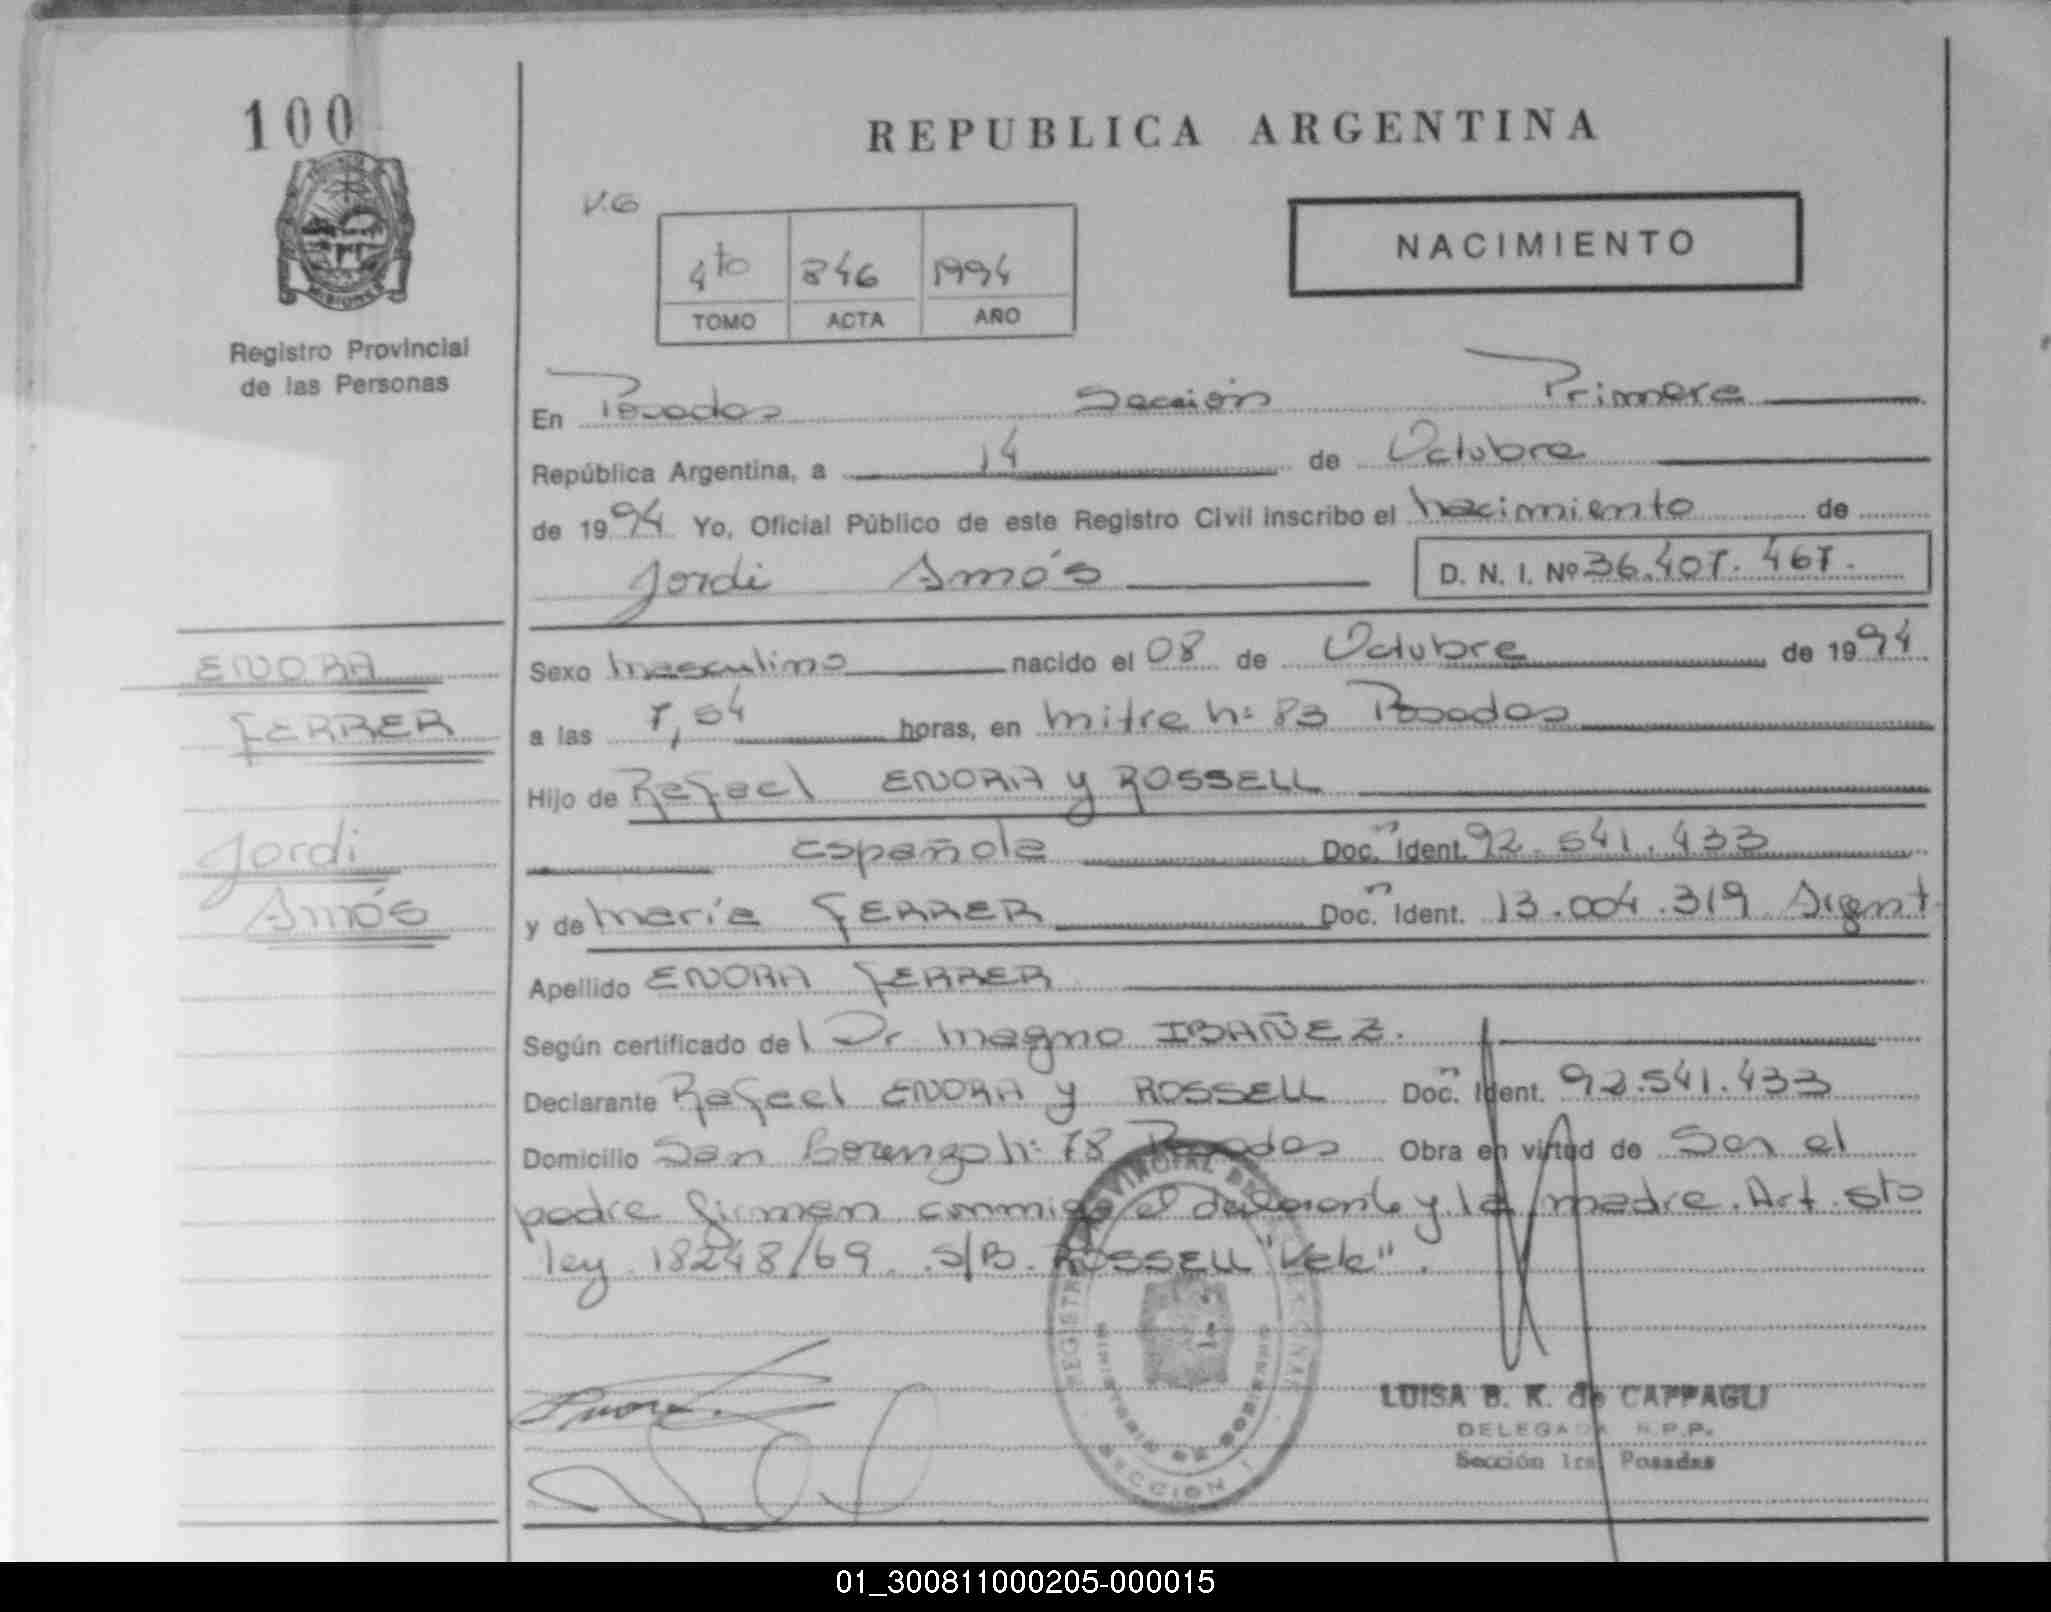 100
REPUBLICA ARGENTINA
V.G
NACIMIENTO
4to 846 1994
TOMO ACTA AÑO
MISIONES
Registro Provincial
de las Personas
En Posadas Sección Primera
República Argentina, a 14 de Octubre
de 1994 Yo, Oficial Público de este Registro Civil inscribo el nacimiento de
Jordi Amós D. N. I. Nº 36.407.467.
ENORA
FERRER
Jordi
Amós
Sexo masculino nacido el 08 de Octubre de 1994
a las 7,54 horas, en mitre n: 83 Posadas
Hijo de Rafael ENORA y ROSSELL
española Doc.n Ident. 92.541.433
y de maría FERRER Doc.n Ident. 13.004.319 Argent.
Apellido ENORA FERRER
Según certificado del Dr magno IBAÑEZ.
Declarante Rafael ENORA y ROSSELL Doc.n Ident. 92.541.433
Domicilio San Lorenzo n: 78 Posadas Obra en virtud de Ser el
padre firman conmigo el declarante y la madre. Art. 5to
ley 18248/69. S/B. ROSSELL "Vale".
REGISTRO PROVINCIAL DE LAS PERSONAS
MINISTERIO DE GOBIERNO
SECCION 1
LUISA B. K. de CAPPAGLI
DELEGADA R.P.P.
Sección 1ra Posadas
01_300811000205-000015